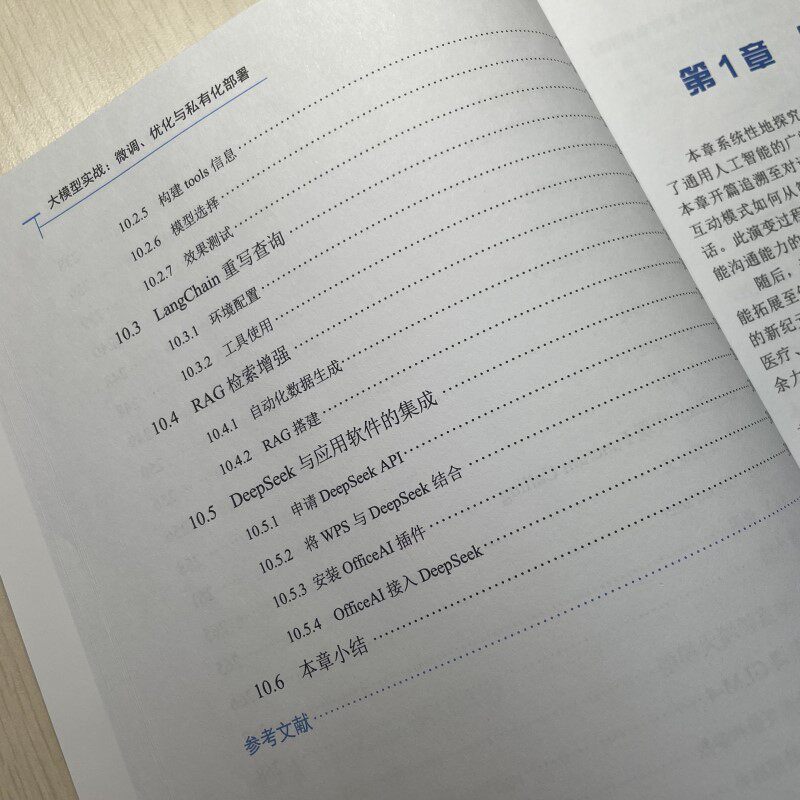 大模型实战：微调、优化与私有化部署
10.2.5 构建 tools 信息
10.2.6 模型选择
10.2.7 效果测试
10.3 LangChain 重写查询
10.3.1 环境配置
10.3.2 工具使用
10.4 RAG 检索增强
10.4.1 自动化数据生成
10.4.2 RAG 搭建
10.5 DeepSeek 与应用软件的集成
10.5.1 申请 DeepSeek API
10.5.2 将 WPS 与 DeepSeek 结合
10.5.3 安装 OfficeAI 插件
10.5.4 OfficeAI 接入 DeepSeek
10.6 本章小结
参考文献
第1章
本章系统性地探究
了通用人工智能的广
本章开篇追溯至对
互动模式如何从
话。此演变过程
能沟通能力的
随后，
能拓展至
的新纪元
医疗、
余力